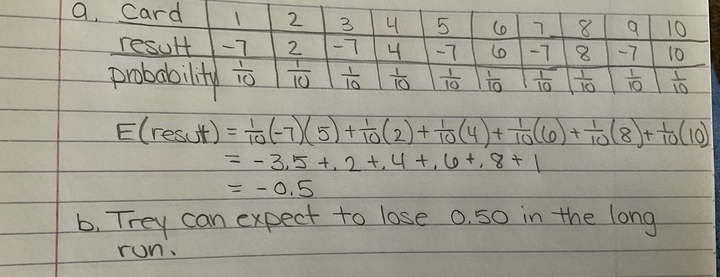 a. card 1 2 3 4 5 6 7 8 9 10
result -7 2 -7 4 -7 6 -7 8 -7 10
probability 1/10 1/10 1/10 1/10 1/10 1/10 1/10 1/10 1/10 1/10
E(result) = 1/10(-7)(5) + 1/10(2) + 1/10(4) + 1/10(6) + 1/10(8) + 1/10(10)
= -3.5 + .2 + .4 + .6 + .8 + 1
= -0.5
b. Trey can expect to lose 0.50 in the long
run.